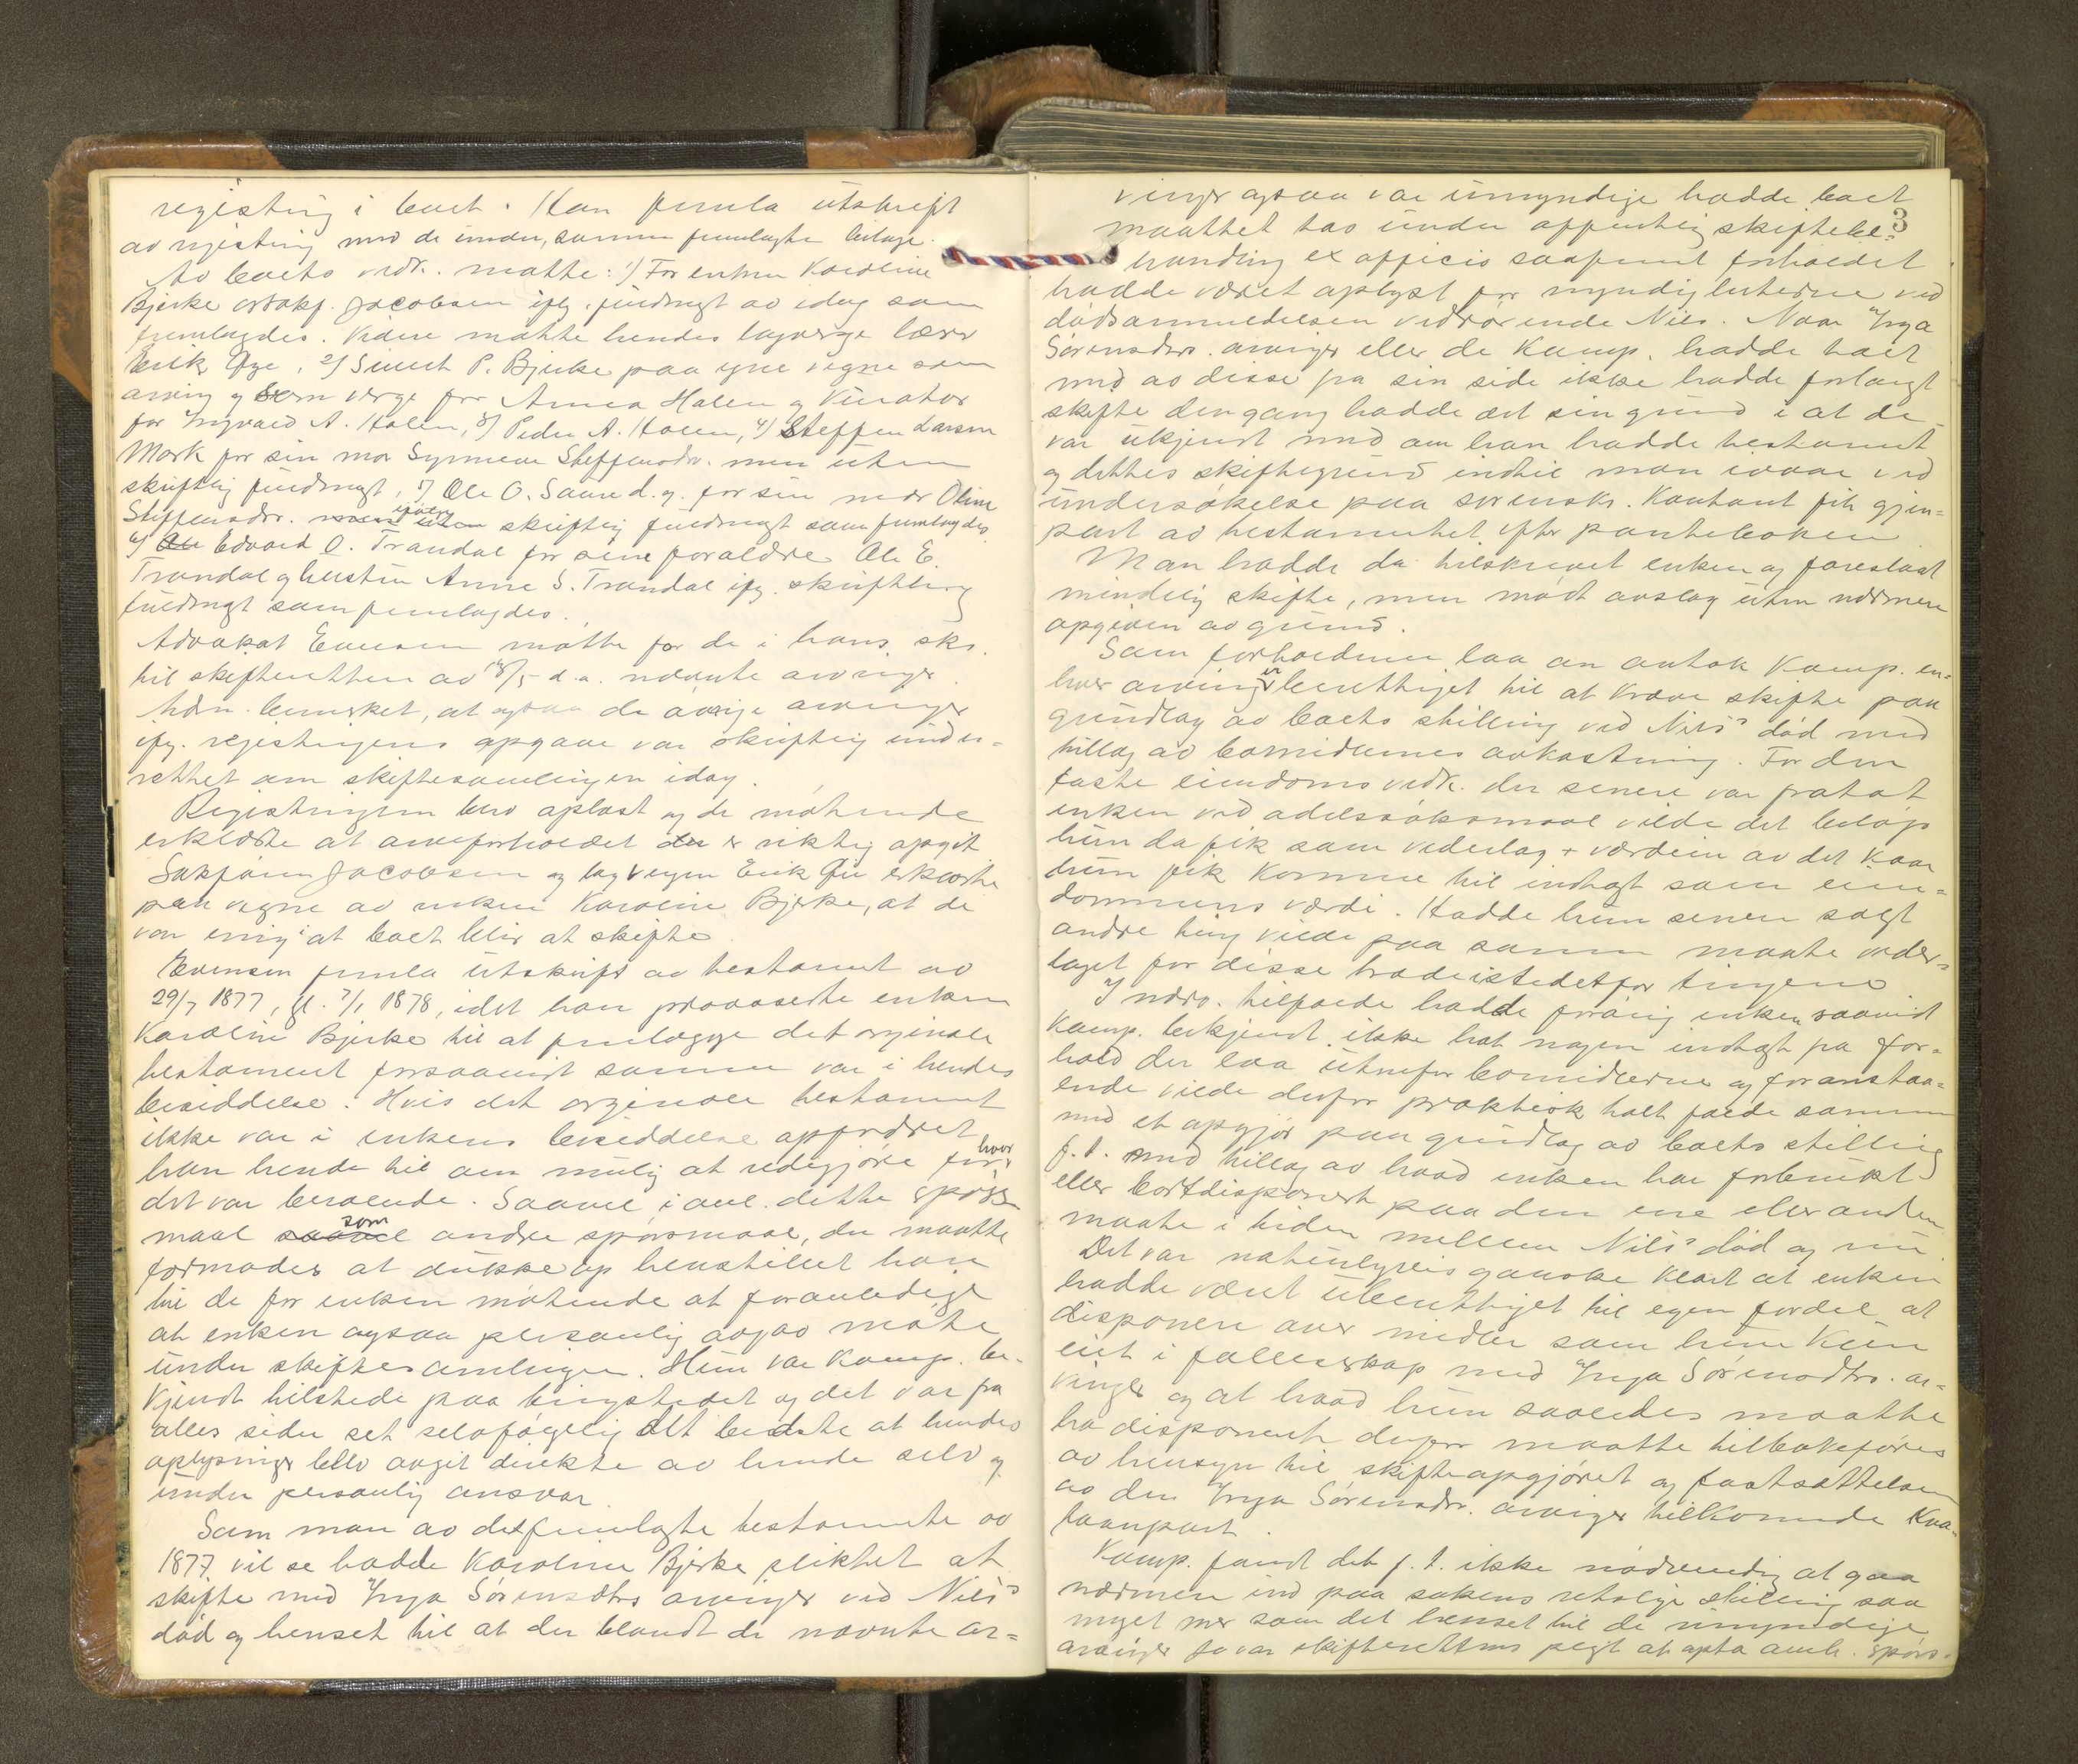 registring i boet. Han fremla utskrift
av registring med de under samme fremlagte bilage.
Av boets vedk. møtte: 1) For enken Karoline
Bjerke ovrakf. Jacobsen ifg. fuldmagt av idag som
fremlagdes. Videre møtte hendes lagverge lærer
Erik Øye, 2) Sivert P. Bjerke paa egne vegne som
arving og som verge for Anna Halen og Kurator
for Ingvald A. Halen, 3) Peder A. Halen, 4) Steffen Larsen
Mork for sin mor Synneve Steffensdtr. men uten
skriftlig fuldmagt, 5) Ole O. Saure d.y. for sin mor Oline
Steffensdtr. men uten ifølge skriftlig fuldmagt som fremlagdes
6) Ole Edvard O. Trandal for sine forældre Ole E.
Trandal og hustru Anne S. Trandal ifg. skriftlig
fuldmagt som fremlagdes.
Advokat Evensen møtte for de i hans skr.
til skifteretten av 18/5 d.a. nævnte arvinger.
Han bemerket, at ogsaa de øvrige arvinger
ifg. registringens opgave var skriftlig under-
rettet om skiftesamlingen idag.
Registringen blev oplæst og de møtende
erklærte at arveforholdet der er riktig opgit
Sakfører Jacobsen og lagvergen Erik Øie erklærte
paa vegne av enken Karoline Bjerke, at de
var enig i at boet blir at skifte
Evensen fremla utskrift av testament av
29/7 1877, gl. 7/1 1878, idet han provoserte enken
Karoline Bjerke til at fremlægge det orginale
testament forsaavidt samme var i hendes
besiddelse. Hvis det orginale testament
ikke var i enkens besiddelse opfordret
han hende til om mulig at redegjøre for hvor
det var beroende. Saavel i anl. dette spørs-
maal saavel som andre spørsmaal, der maatte
formodes at dukke op henstillet han
til de for enken møtende at foranledige
at enken ogsaa personlig avgav møte
under skiftesamlingen. Hun var Komp. be-
kjendt tilstede paa tingstedet og det var fra
alles sider set selvføgelig det bedste at hendes
oplysninger blev avgit direkte av hende selv og
under personlig ansvar.
Som man av det fremlagte testamente av
1877 vil se hadde Karoline Bjerke pliktet at
skifte med Inga Sørensdtrs arvinger ved Nils'
død og henset til at der blandt de nævnte ar-
3
vinger ogsaa var umyndige hadde boet
maattet tas under offentlig skiftebe-
handling ex officio saafremt forholdet
hadde været oplyst for myndigheterne ved
dødsanmeldelsen vedrørende Nils. Naar Inga
Sørensdtrs. arvinger eller de Komp. hadde talt
med av disse fra sin side ikke hadde forlangt
skifte dengang hadde det sin grund i at de
var ukjendt med om han hadde testament
og dettes skiftegrund indtil man ivaar ved
undersøkelse paa sorensk. Kontant fik gjen-
part av testamentet efter panteboken
Man hadde da tilskrevet enken og foreslaat
mindelig skifte, men møtt avslag uten nærmere
opgiven av grund.
Som forholdene laa an antok Komp. en-
hver arving er berettiget til at kræve skifte paa
grundlag av boets stilling ved Nils' død med
tillæg av bomidlernes avkastning. For den
faste eiendoms vedk. der senere var fratat
enken ved odelssøksmaal vilde det beløp
hun da fik som vederlag + værdien av det kaar
hun fik komme til indtægt som eien-
dommens værdi. Hadde hun senere solgt
andre ting vilde paa samme maate veder-
laget for disse træde istedetfor tingene
I nærv. tilfælde hadde forøvrig enken saavidt
Komp. bekjendt ikke hat nogen indtægt fra for-
hold der laa utenfor bomidlerne og foranstaa-
ende vilde derfor praktisk talt falde sammen
med et opgjør paa grundlag av boets stilling
f.t. med tillæg av hvad enken har forbrukt
eller bortdisponert paa den ene eller anden
maate i tiden mellem Nils' død og nu.
Det var naturligvis ganske klart at enken
hadde været uberettiget til egen fordel at
disponere over midler som hun kun
eiet i fælleseskap med Inga Sørensdtrs. ar-
vinger og at hvad hun saaledes maatte
ha disponert derfor maatte tilbakeføres
av hensyn til skifteopgjøret og fastsættelsen
av den Inga Sørensdtr. arvinger tilkommende Kva-
taanpart.
Komp. fandt det f.t. ikke nødvendig at gaa
nærmere ind paa sakens retslige stilling saa
meget mer som det henset til de umyndige
arvinger jo var skifterettens pligt at opta evnt. spørs-